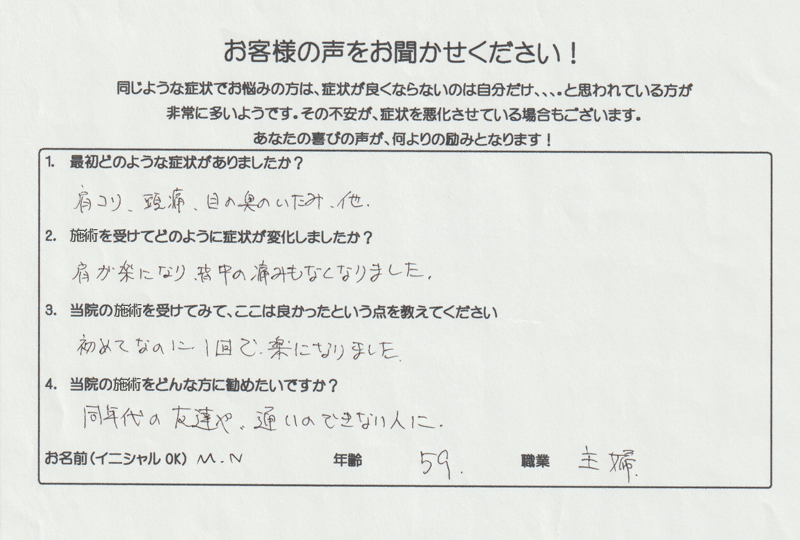 お客様の声をお聞かせください！
同じような症状でお悩みの方は、症状が良くならないのは自分だけ、、、。と思われている方が
非常に多いようです。その不安が、症状を悪化させている場合もございます。
あなたの喜びの声が、何よりの励みとなります！
1. 最初どのような症状がありましたか？
肩コリ、頭痛、目の奥のいたみ、他.
2. 施術を受けてどのように症状が変化しましたか？
肩が楽になり、背中の痛みもなくなりました.
3. 当院の施術を受けてみて、ここは良かったという点を教えてください
初めてなのに1回で、楽になりました.
4. 当院の施術をどんな方に勧めたいですか？
同年代の友達や、通いのできない人に.
お名前（イニシャルOK） M.N 年齢 59. 職業 主婦.